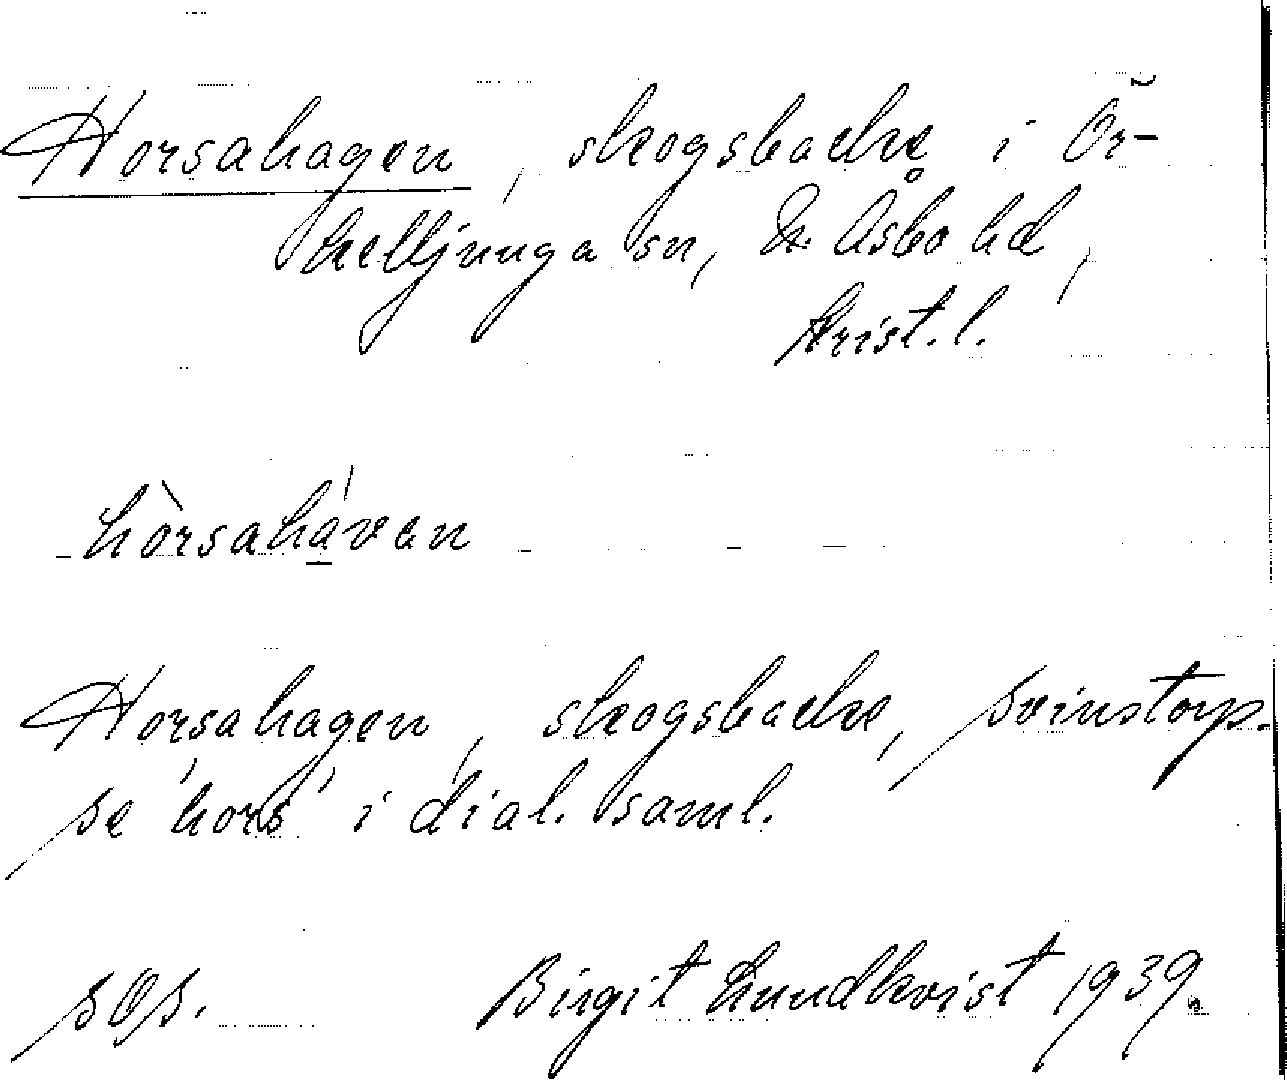 Horsahagen, skogsbacke i Ör-
kelljunga sn, N. Åsbo hd,
Krist. l.
hòrsahá̱van
Horsahagen, skogsbacke, Svinstorp.
Se 'hors' i dial. saml.
SOS. Birgit Lundkvist 1939.